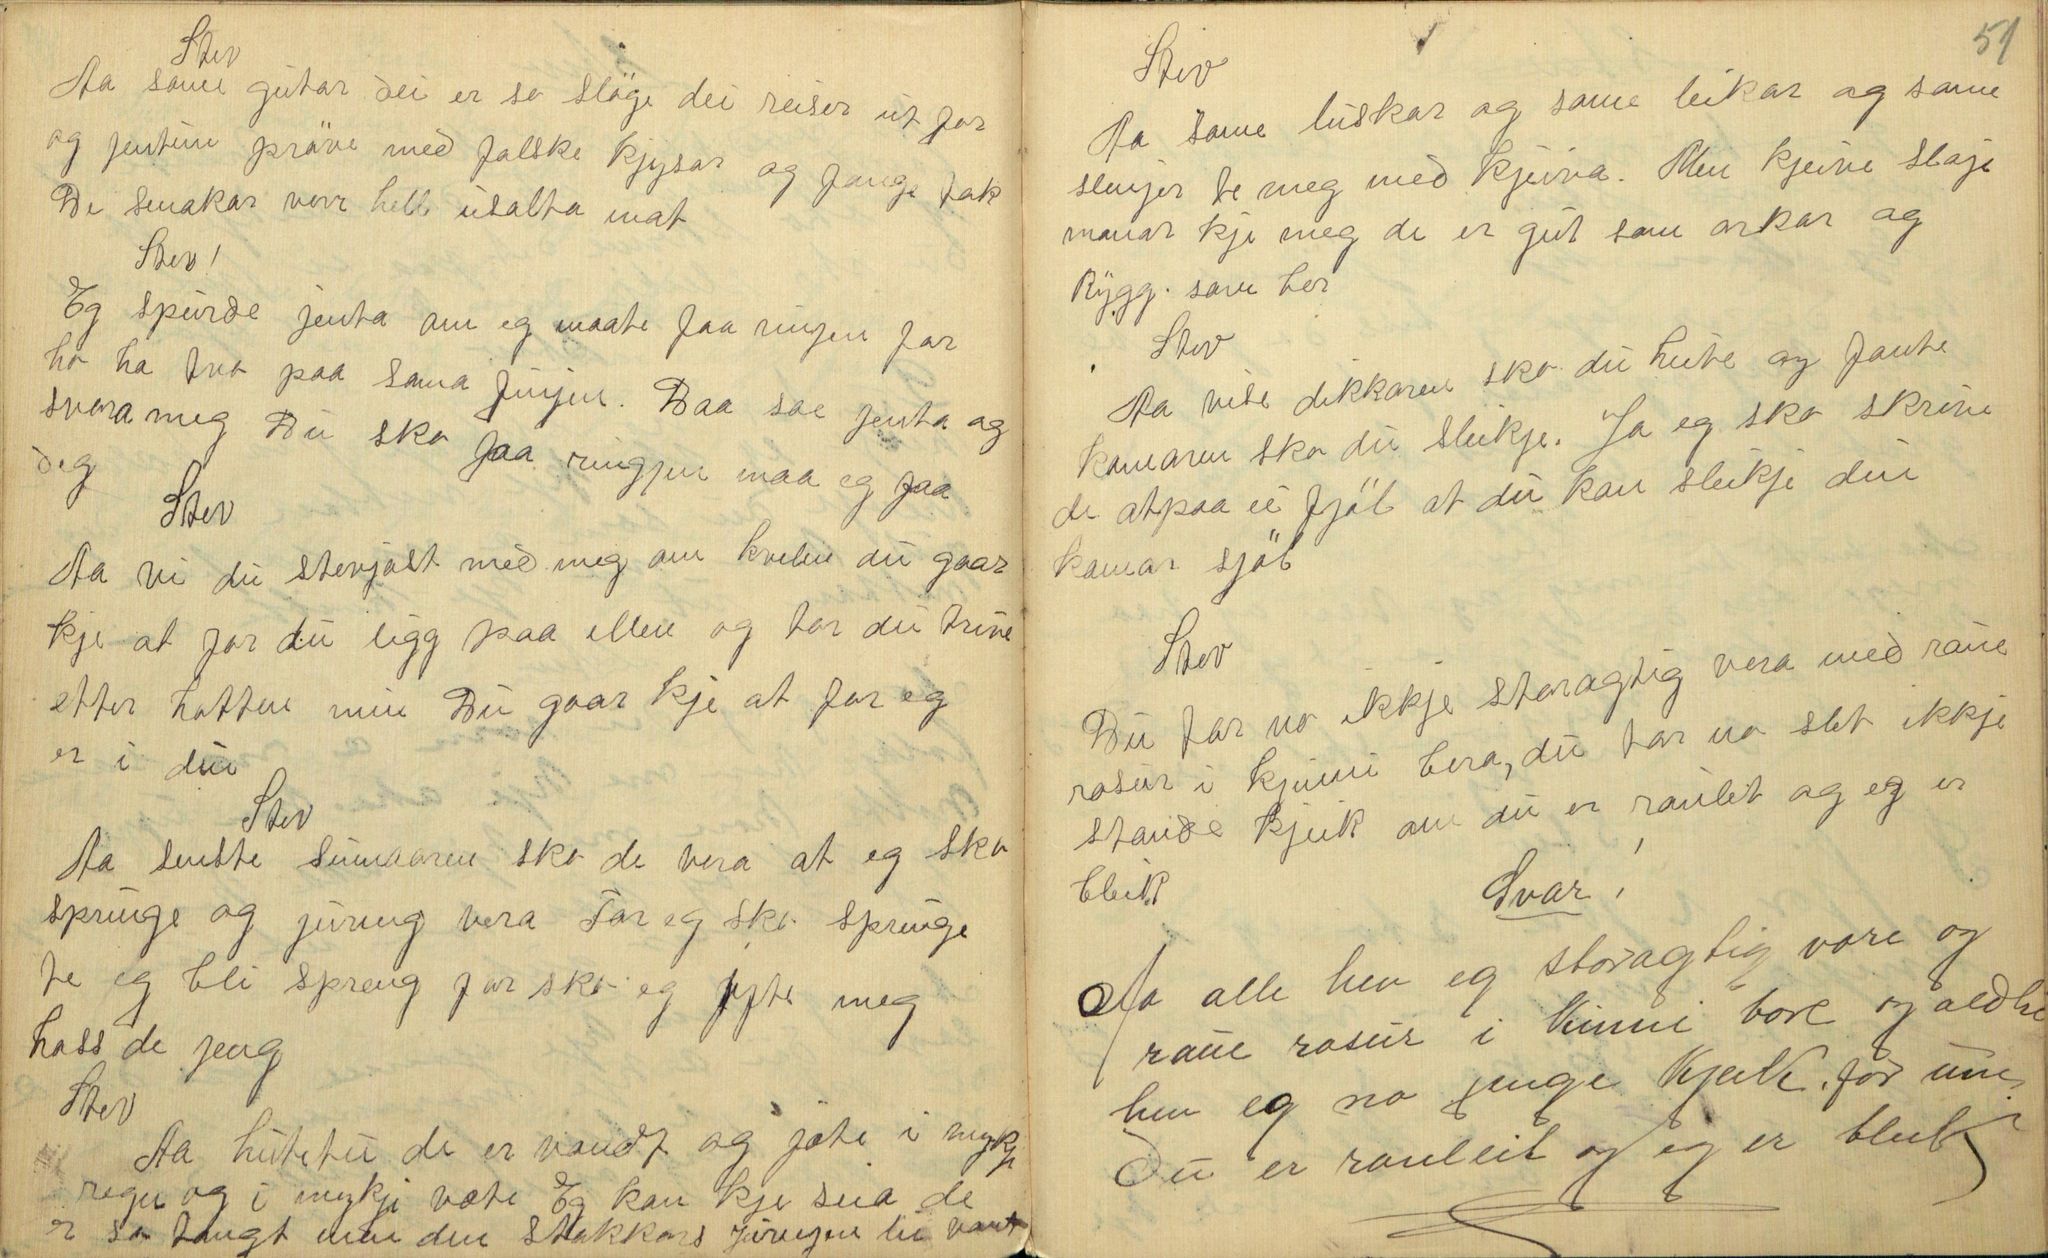 Stev
Aa same gutar dei er so slöge dei reiser ut for
og jentun pröve med falske kjysar og fange tak
De smakar verr hell usalta mat
Stev!
Eg spurde jenta om eg maate faa ringjen for
ho ha tvo paa sama finjen. Daa sae jenta og
svora meg Du sko faa ringjen maa eg faa
deg
Stev
Aa vi du stevjast med meg om kvelen du gaar
kje at for du ligg paa ellen og tar du trive
etter hotten min Du gaar kje at for eg
er i din
Stev
Aa senste sunnaaren sko de vera at eg sko
springe og jureng vera For eg sko springe
te eg bli spreng for sko eg jyte meg
hoss de jeng
Stev
Aa hutetu de er vondt og jöte i mykji
regn og i mykji væte Eg kan kje seia de
er so tungt men den stakkars jurnjen li vont
51
Stev
Aa same luskar og same leikar og same
slenjer te meg med kjeiva. Men kjeive slaje
monar kje meg de er gut som orkar og
Rygg. som ber
Stev
Aa vise dikkaren sko du hute og fante
kamaren sko du sleikje. Ja eg sko skrive
de atpaa ei fjöl at du kan sleikje din
kamar sjöl
Stev
Du tar no ikkje storagtig vera med raue
rosur i kjinni bera, du tar no slet ikkje
stande kjeik om du er rauleit og eg er
bleik
Svar!
Aa alle hev eg storagtig vore og
raue rosur i kinni bore og aldri
hev eg no jenge kjeik. for um
Du er rauleit og eg er bleik